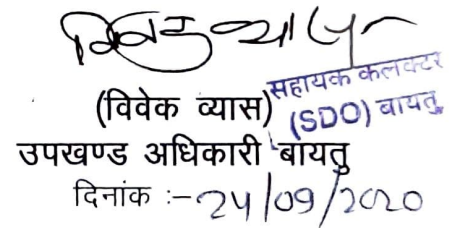 विवेक व्यास
(विवेक व्यास) सहायक कलक्टर
(SDO) बायतु
उपखण्ड अधिकारी बायतु
दिनांक :- 24/09/2020